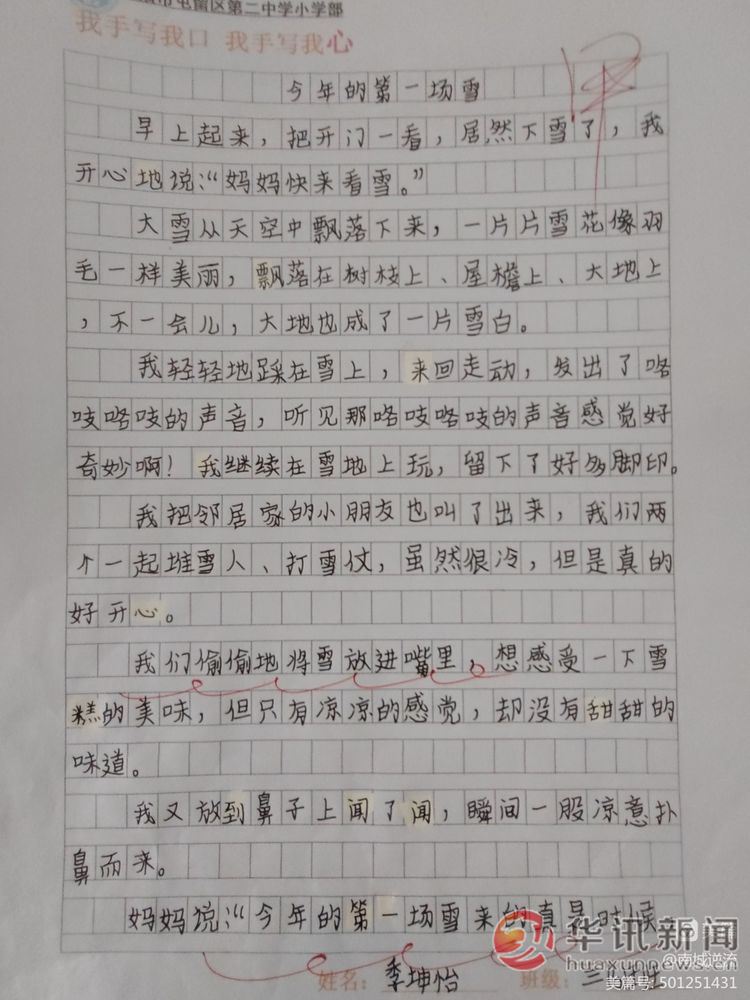 市屯留区第二中学小学部
我手写我口 我手写我心
今年的第一场雪
早上起来，把开门一看，居然下雪了，我
开心地说：“妈妈快来看雪。”
大雪从天空中飘落下来，一片片雪花像羽
毛一样美丽，飘落在树枝上、屋檐上、大地上
，不一会儿，大地也成了一片雪白。
我轻轻地踩在雪上，来回走动，发出了咯
吱咯吱的声音，听见那咯吱咯吱的声音感觉好
奇妙啊！我继续在雪地上玩，留下了好多脚印。
我把邻居家的小朋友也叫了出来，我们两
个一起堆雪人、打雪仗，虽然很冷，但是真的
好开心。
我们偷偷地将雪放进嘴里，想感受一下雪
糕的美味，但只有凉凉的感觉，却没有甜甜的
味道。
我又放到鼻子上闻了闻，瞬间一股凉意扑
鼻而来。
妈妈说：“今年的第一场雪来的真是时候
姓名：季坤怡 班级：三
华讯新闻
huaxunnews.cn
@南城逆流
美篇号：501251431